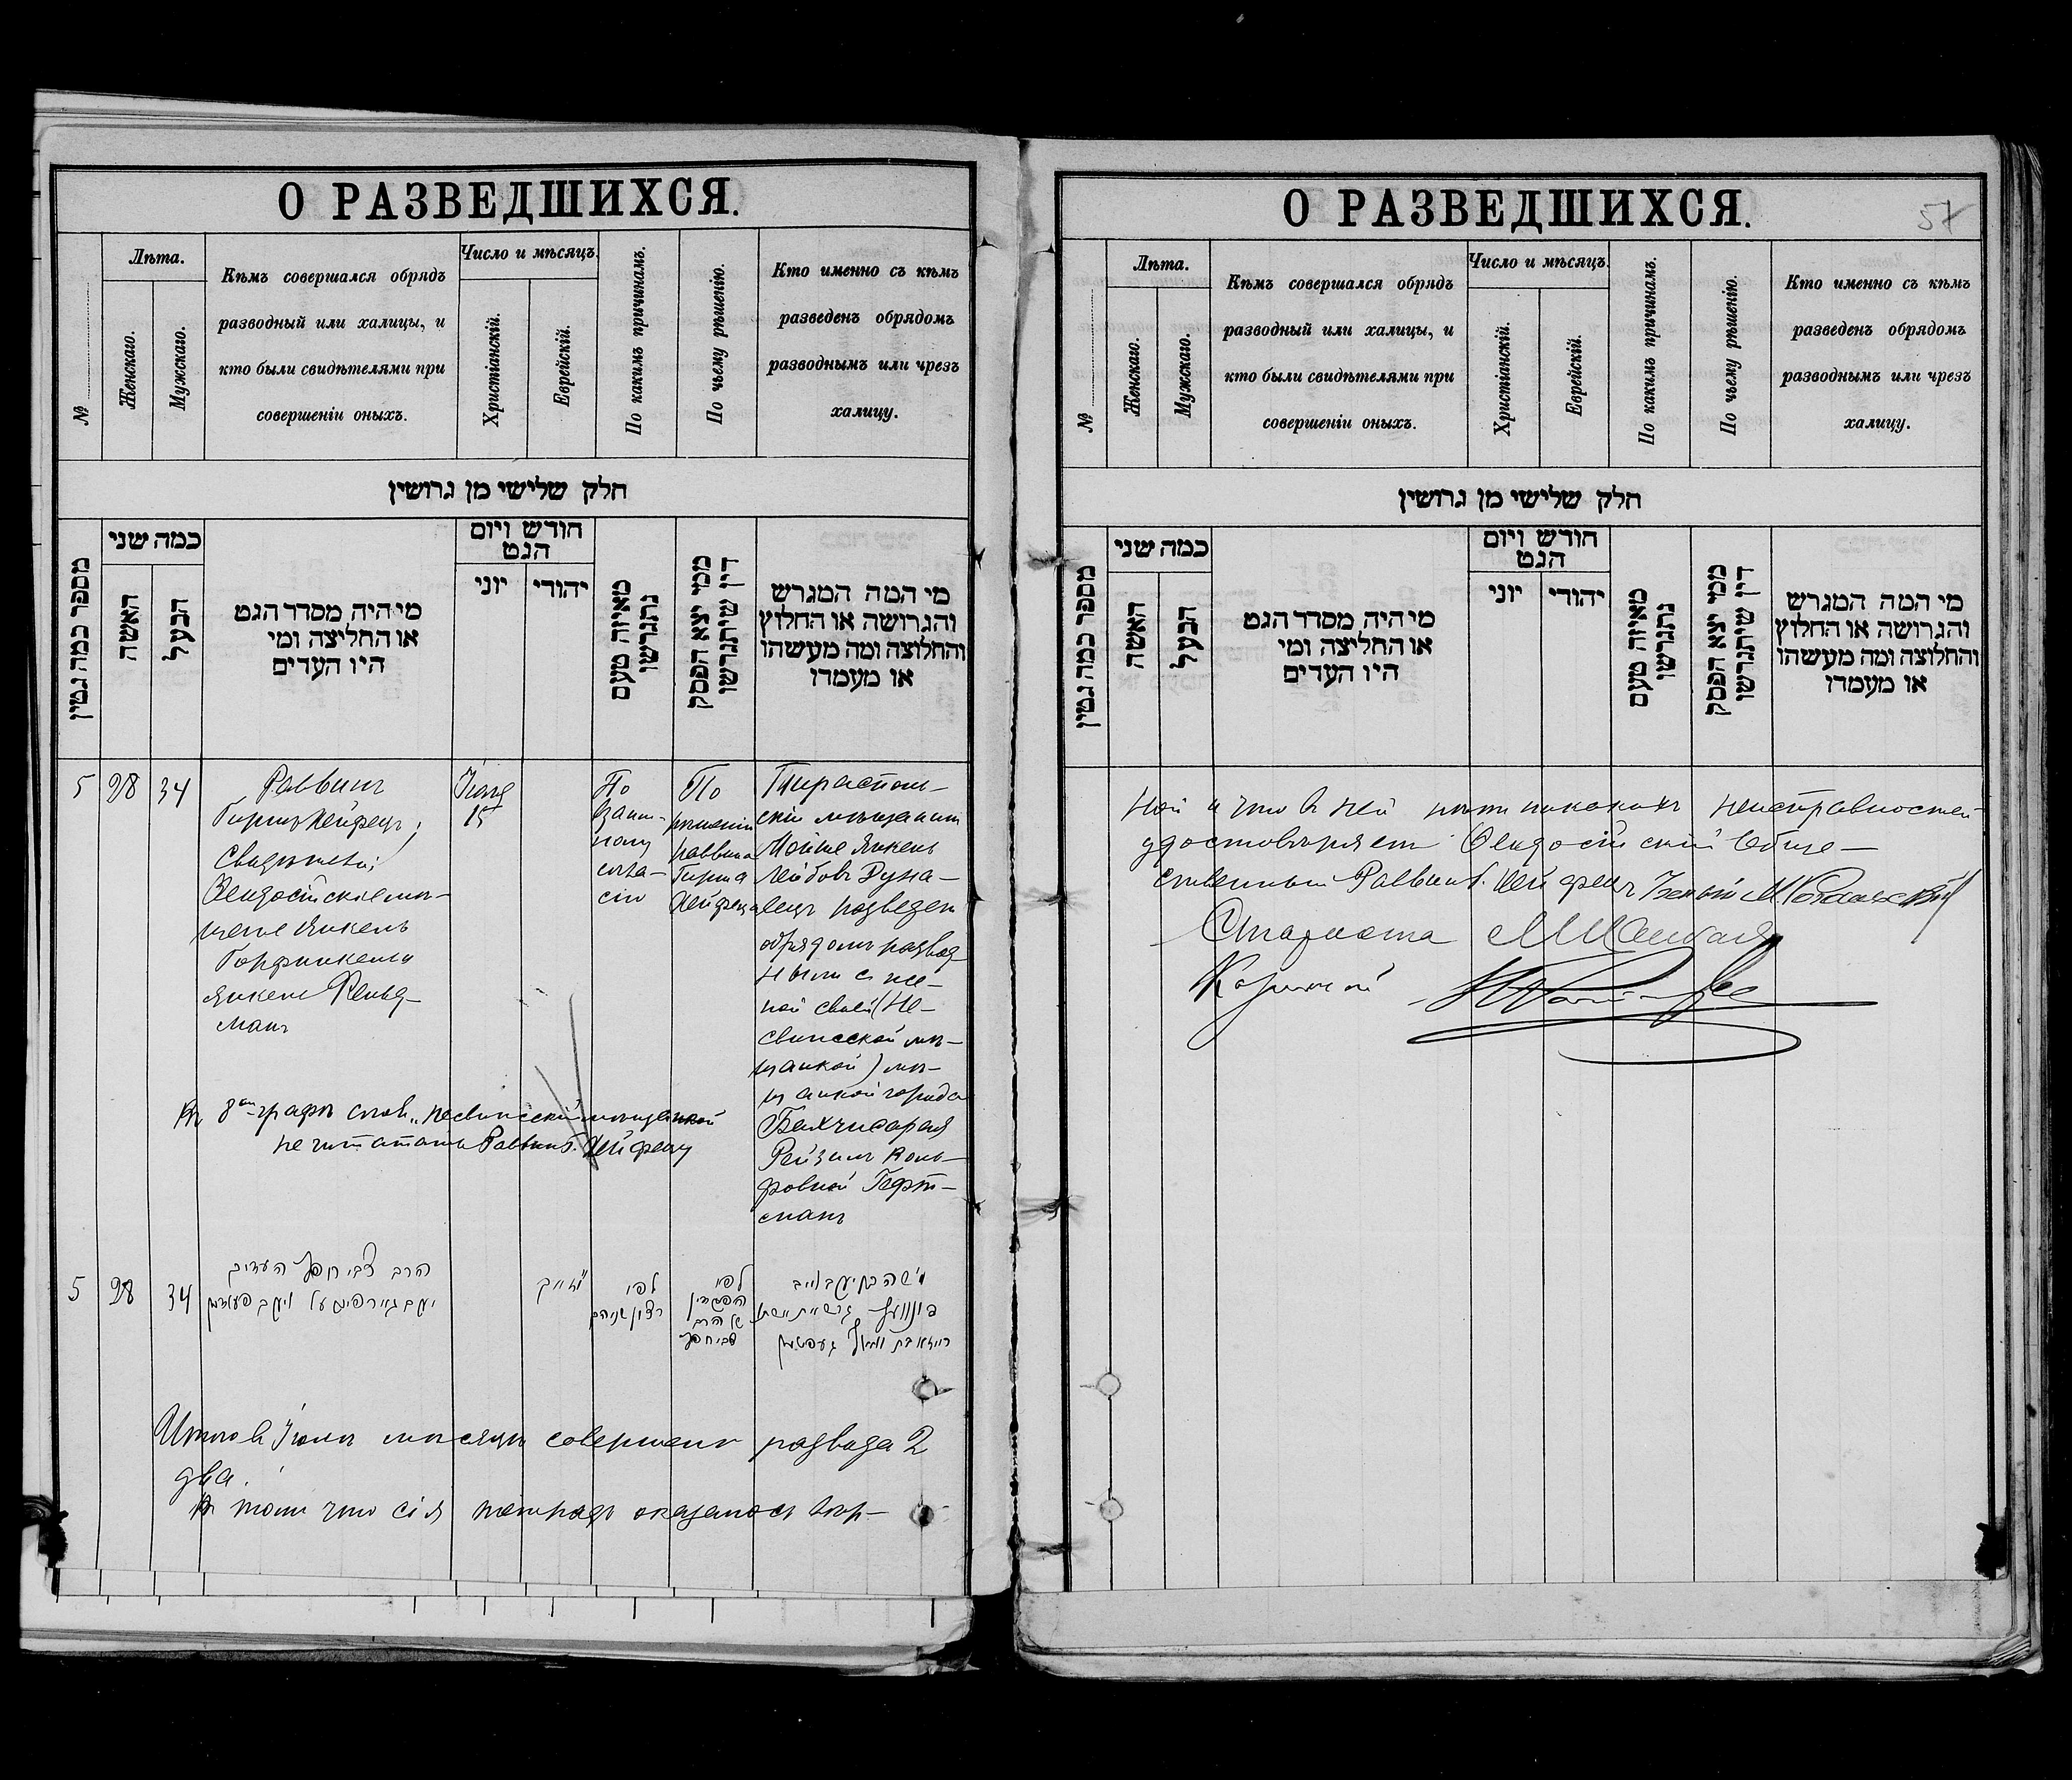 О РАЗВЕДШИХСЯ.
№
Лѣта.
Женскаго.
Мужскаго.
Кѣмъ совершался обрядъ
разводный или халицы, и
кто были свидѣтелями при
совершеніи оныхъ.
Число и мѣсяцъ.
Христіанскій.
Еврейскій.
По какимъ причинамъ.
По чьему рѣшенію.
Кто именно съ кѣмъ
разведенъ обрядомъ
разводнымъ или чрезъ
халицу.
חלק שלישי מן גרושין
מספר כמה גטין
כמה שני
האשה
הבעל
מי היה מסדר הגט
או החליצה ומי
היו העדים
חודש ויום
הגט
יוני
יהודי
מאיזה טעם
נתגרשו
ממי יצא הפסק
דין שיתגרשו
מי המה המגרש
והגרושה או החלוץ
והחלוצה ומה מעשהו
או מעמדו
5
28
34
Раввинъ
Гиршъ Хейфецъ;
Свидѣтели:
Ѳеодосійскіе мѣ-
щане Янкель
Горфинкель и
Янкель Фельд-
манъ
Іюля
15
По
взаим-
ному
согла-
сію
По
рѣшенію
раввина
Гирша
Хейфеца
Тирасполь-
скій мѣщанинъ
Мойше Янкель
Лейбовъ Дуна-
вецъ разведенъ
обрядомъ развод-
нымъ с же-
ной своей (Не-
свижской мѣ-
щанкой) мѣ-
щанкой города
Бахчисарая
Рейзилъ Воль-
фовной Гефт-
манъ
Въ 8ой графѣ слов. „Несвижской мѣщанкой"
не читатать Раввинъ Г. Хейфецъ
5
28
34
הרב צבי חפץ העדים
לפי
רצון שניהם
לפי
הפסק דין
של הרב
צבי חפץ
משה יעקב לייב
Итого въ Іюлѣ мѣсяцѣ совершено развода 2
два.
Въ томъ что сія тетрадь оказалась вѣр-
О РАЗВЕДШИХСЯ.
57
№
Лѣта.
Женскаго.
Мужскаго.
Кѣмъ совершался обрядъ
разводный или халицы, и
кто были свидѣтелями при
совершеніи оныхъ.
Число и мѣсяцъ.
Христіанскій.
Еврейскій.
По какимъ причинамъ.
По чьему рѣшенію.
Кто именно съ кѣмъ
разведенъ обрядомъ
разводнымъ или чрезъ
халицу.
חלק שלישי מן גרושין
מספר כמה גטין
כמה שני
האשה
הבעל
מי היה מסדר הגט
או החליצה ומי
היו העדים
חודש ויום
הגט
יוני
יהודי
מאיזה טעם
נתגרשו
ממי יצא הפסק
דין שיתגרשו
מי המה המגרש
והגרושה או החלוץ
והחלוצה ומה מעשהו
או מעמדו
ной и что в ней нѣтъ никакихъ неисправностей
удостовѣряетъ Ѳеодосійскій Обще-
ственный Раввинъ Г. Хейфецъ
Староста